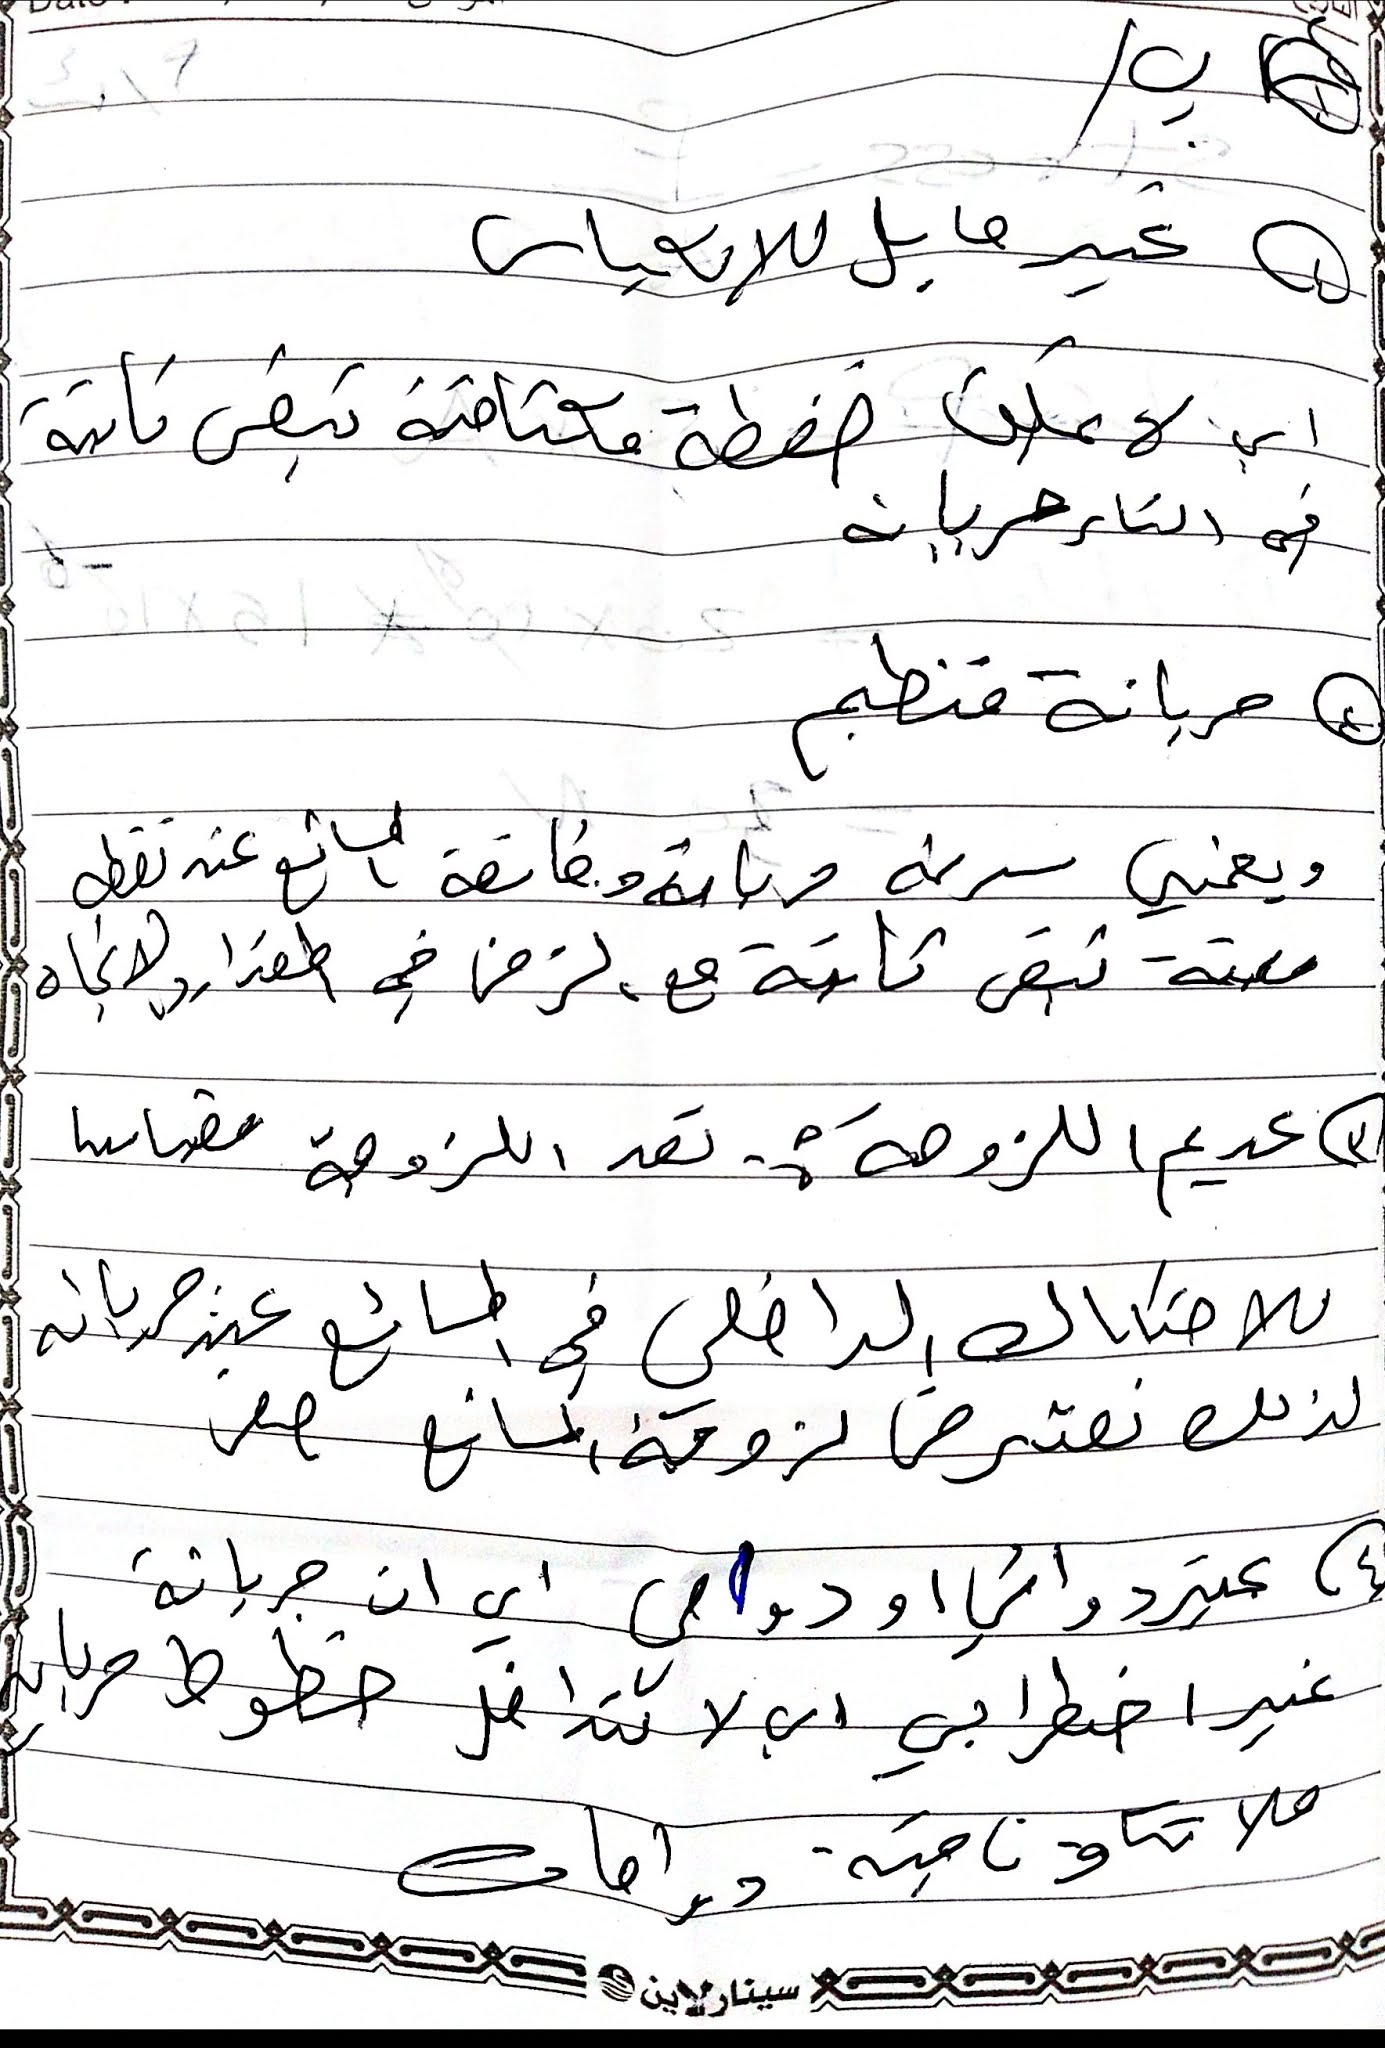 ب /
① غير قابل للانكباس
اي لا يمكن ضغطة فكثافتة تبقى ثابتة
في اثناء جريانه
② جريانة منتظم
ويعني سرعه جريانة دقائقة المائع عند نقطه
معينة تبقى ثابتة مع الزمن في المقدار والاتجاه
③ عديم اللزوجة : تعد اللزوجة مقياسا
للاحتكاك الداخلي في المائع عند جريانه
لذلك نفترض لزوجة المائع صفر
④ غير دوامي او دوامي اي ان جريانة
غير اضطرابي اي لا تتداخل خطوط جريانه
فلا تتكون فية دوامات
سينارلاين